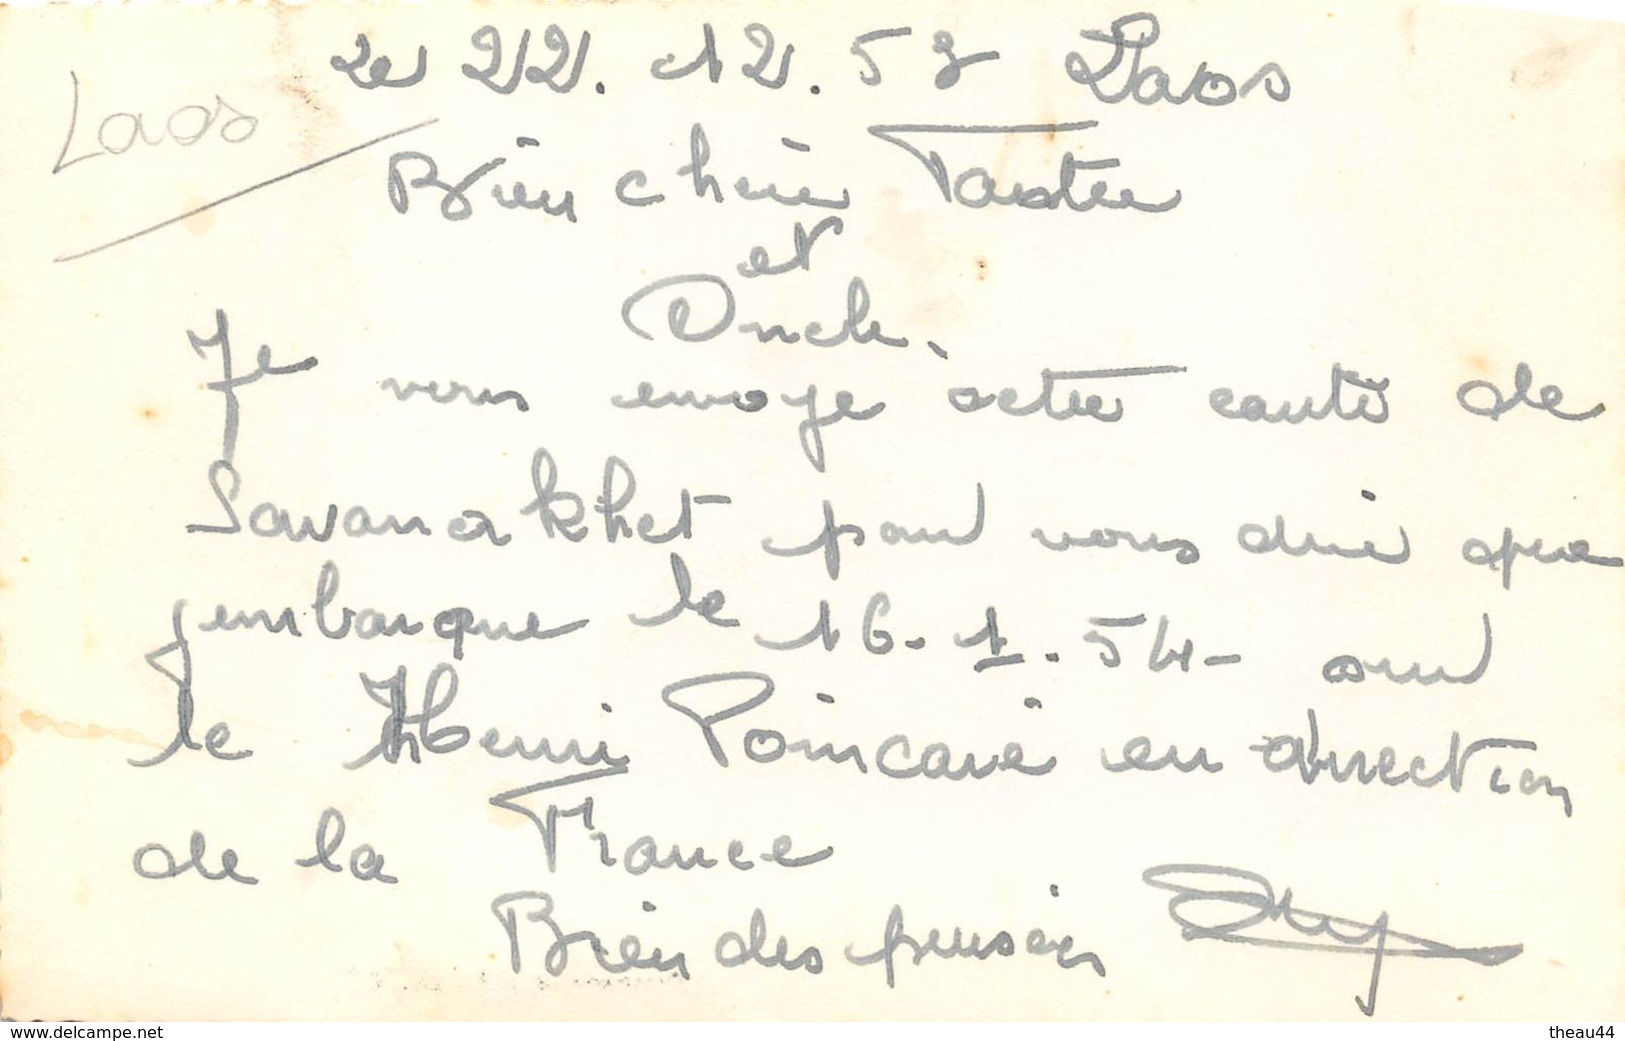 Laos
Le 22.12.53 Laos
Bien chère Tantee
et
Oncle.
Je vous envoye cette carte de
Savanakhet pour vous dire que
j'embarque le 16-1.54- sur
le Henri Poincaré en direction
de la France
Bien des pensées
www.delcampe.net
theau44